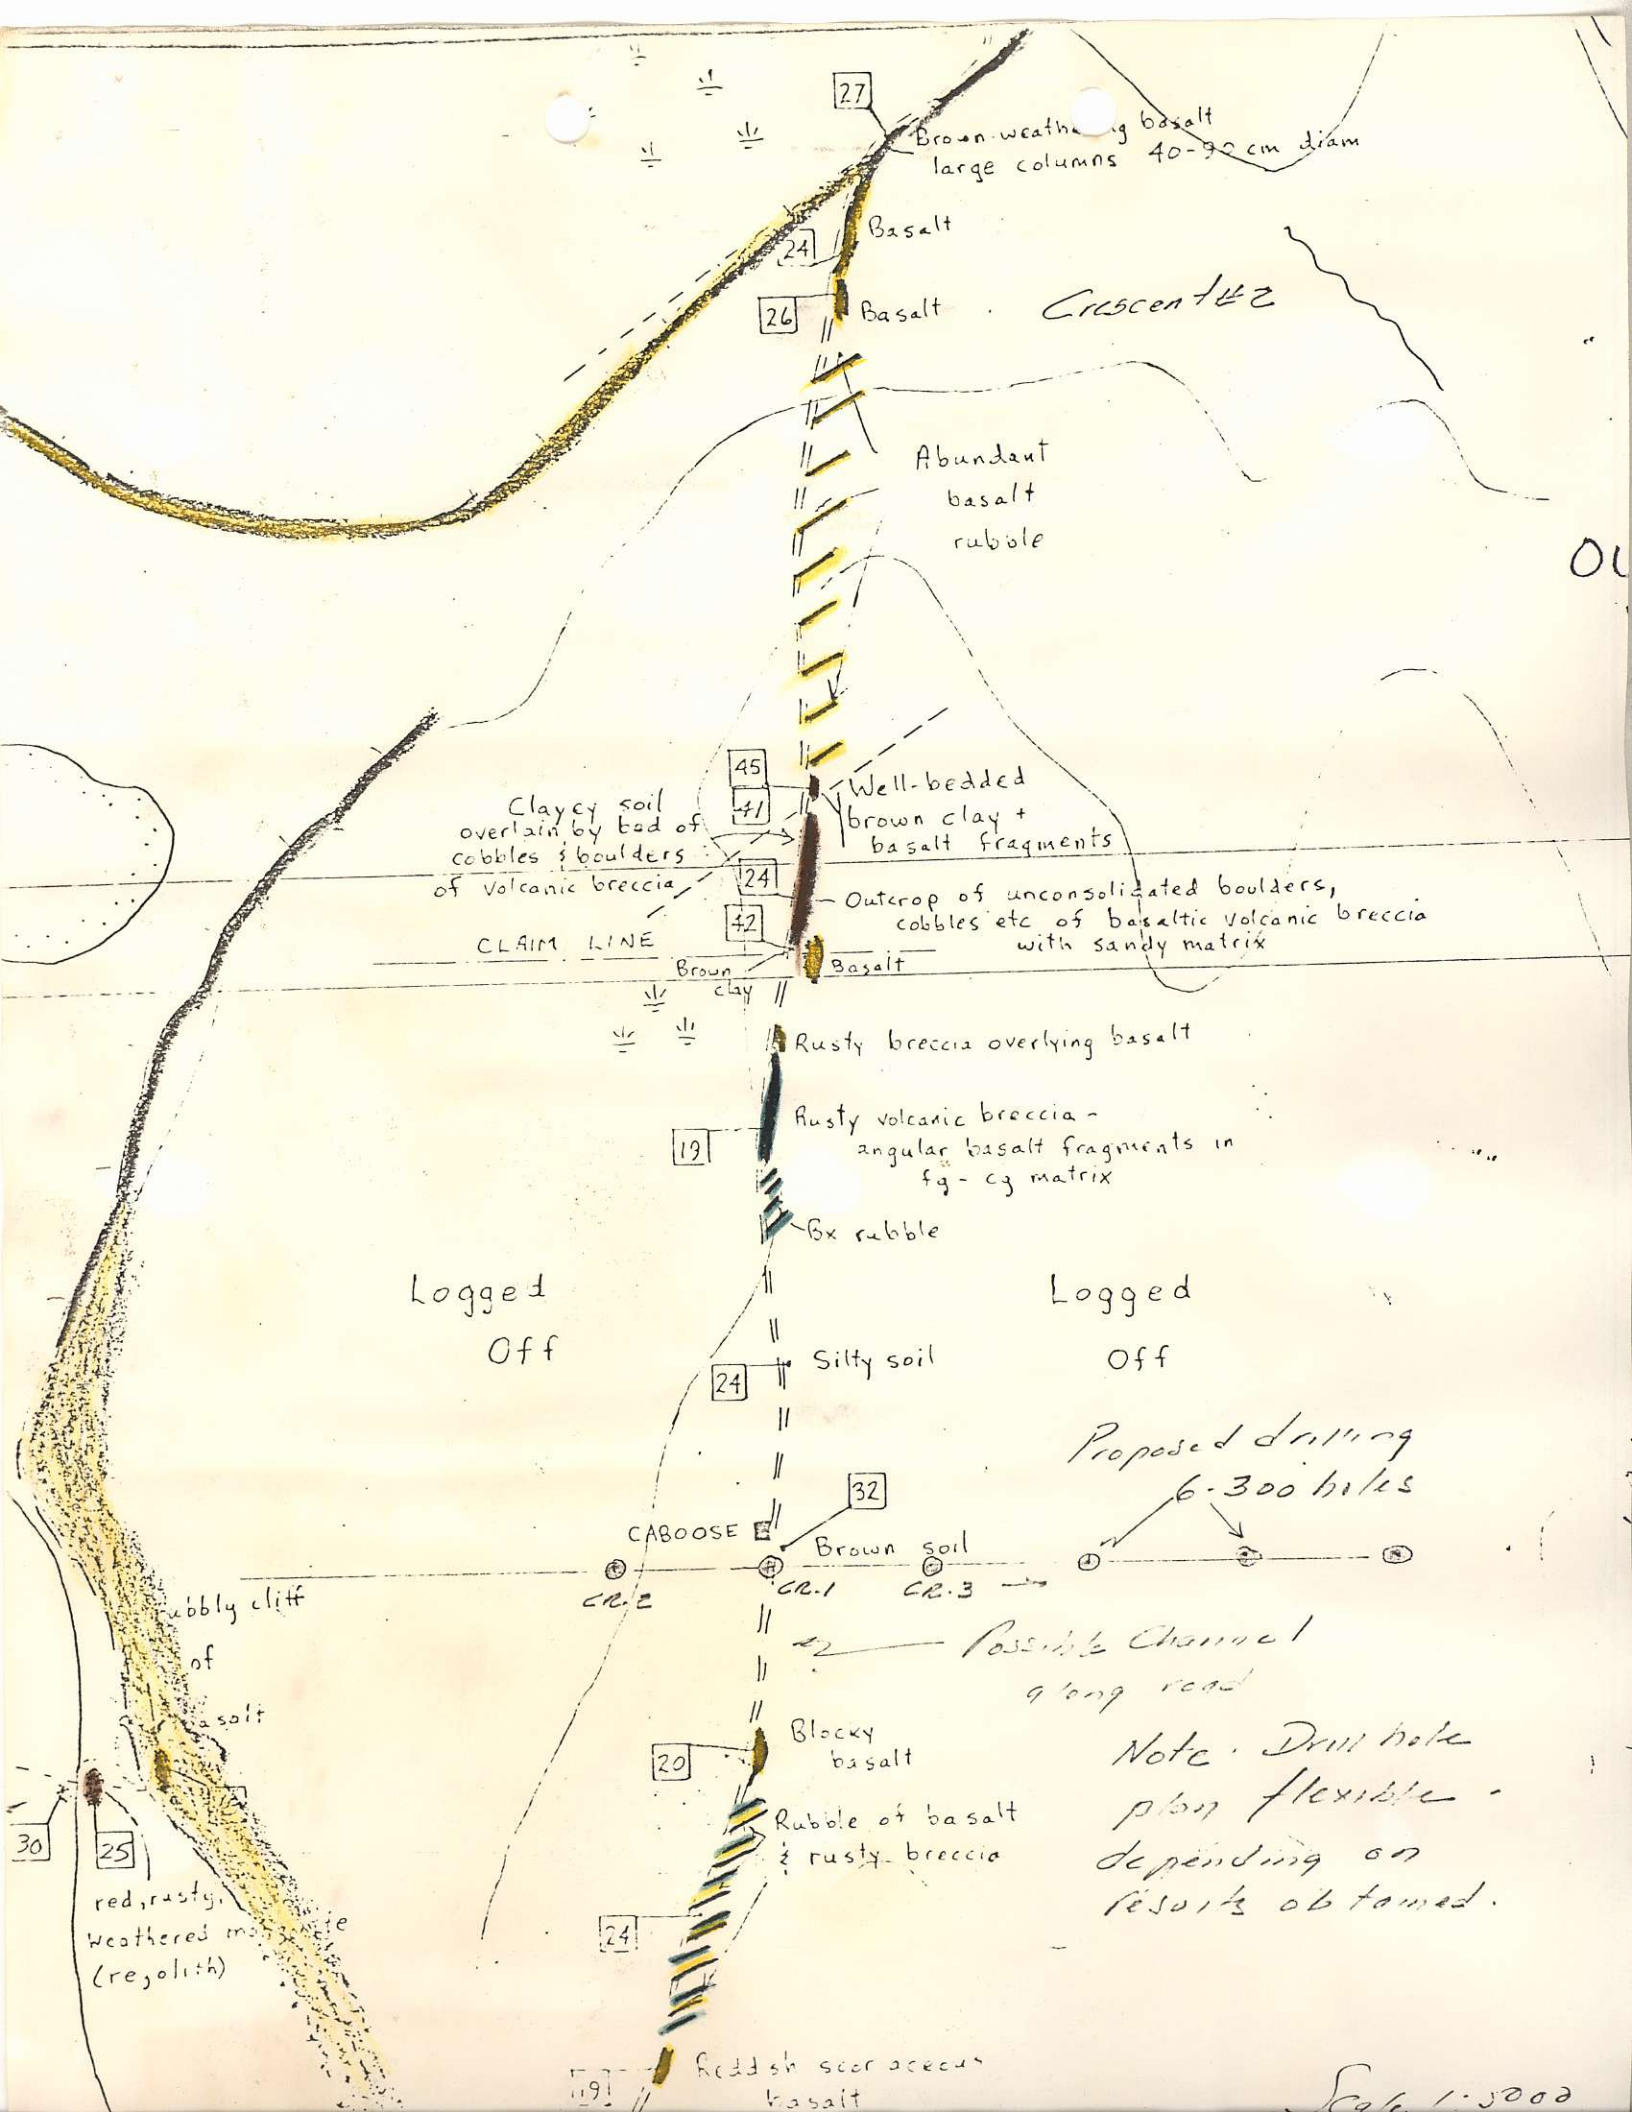 27
Brown-weathe g basalt
large columns 40-90 cm diam
24
Basalt
26
Basalt
Crescent #2
Abundant
basalt
rubble
OL
45
41
Well-bedded
brown clay +
basalt fragments
Clayey soil
overlain by bed of
cobbles & boulders
of volcanic breccia
24
Outcrop of unconsolidated boulders,
cobbles etc of basaltic volcanic breccia
with sandy matrix
42
CLAIM LINE
Brown
clay
Basalt
Rusty breccia overlying basalt
19
Rusty volcanic breccia -
angular basalt fragments in
fg - cg matrix
Bx rubble
Logged
Off
Logged
Off
24
Silty soil
Proposed drilling
6-300 holes
32
CABOOSE
Brown soil
CR.2
CR.1
CR.3
ubbly cliff
of
asalt
Possible Channel
along road
20
Blocky
basalt
Note. Drill hole
plan flexible -
depending on
results obtained.
Rubble of basalt
& rusty breccia
30
25
red, rusty,
Weathered
(regolith)
24
19
Reddish scoriaceous
basalt
Scale 1:5000